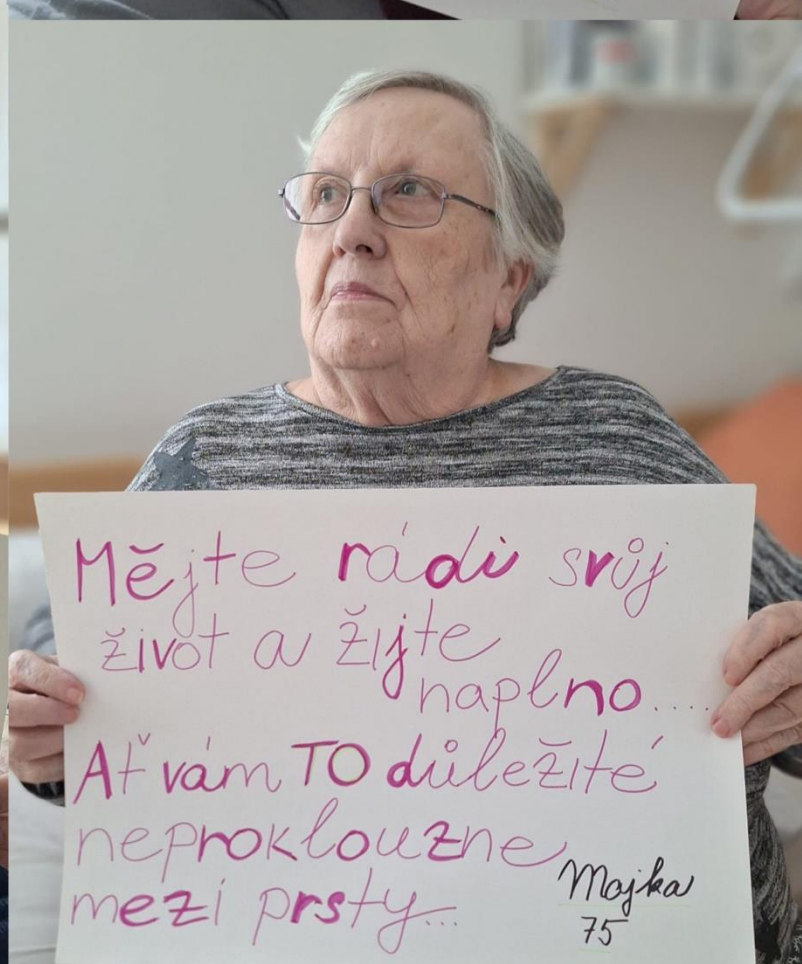 Mějte rádi svůj
život a žijte
naplno....
Ať vám TO důležité
neproklouzne
mezi prsty...
Majka
75